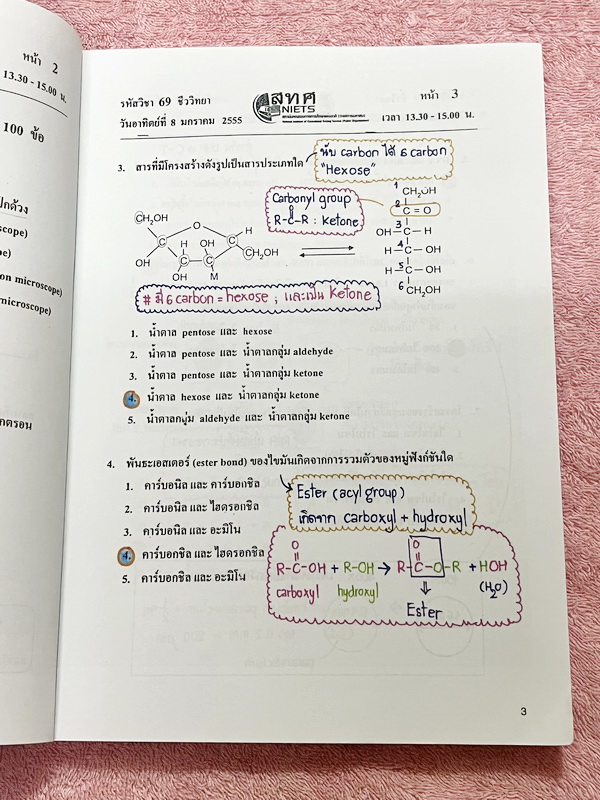 หน้า 2
13.30 - 15.00 น.
100 ข้อ
ปกด้วง
scope)
pe)
on microscope)
microscope)
กตรอน
รหัสวิชา 69 ชีววิทยา
สทศ
NIETS
หน้า 3
วันอาทิตย์ที่ 8 มกราคม 2555
เวลา 13.30 - 15.00 น.
3. สารที่มีโครงสร้างดังรูปเป็นสารประเภทใด
นับ carbon ได้ 6 carbon
"Hexose"
Carbonyl group
O
R-C-R : ketone
CH₂OH
O
C
H
H
OH
C
C
C
CH₂OH
OH
OH
M
1 CH₂OH
2 C = O
OH 3 C H
H 4 C OH
H 5 C OH
6 CH₂OH
# มี 6 carbon = hexose ; และเป็น ketone
1. น้ำตาล pentose และ hexose
2. น้ำตาล pentose และ น้ำตาลกลุ่ม aldehyde
3. น้ำตาล pentose และ น้ำตาลกลุ่ม ketone
4. น้ำตาล hexose และ น้ำตาลกลุ่ม ketone
5. น้ำตาลกลุ่ม aldehyde และ น้ำตาลกลุ่ม ketone
4. พันธะเอสเตอร์ (ester bond) ของไขมันเกิดจากการรวมตัวของหมู่ฟังก์ชันใด
1. คาร์บอนิล และ คาร์บอกซิล
2. คาร์บอนิล และ ไฮดรอกซิล
3. คาร์บอนิล และ อะมิโน
4. คาร์บอกซิล และ ไฮดรอกซิล
5. คาร์บอกซิล และ อะมิโน
Ester (acyl group)
เกิดจาก carboxyl + hydroxyl
O
O
R-C-OH + R-OH → R-C-O-R + HOH
carboxyl hydroxyl
(H₂O)
Ester
3